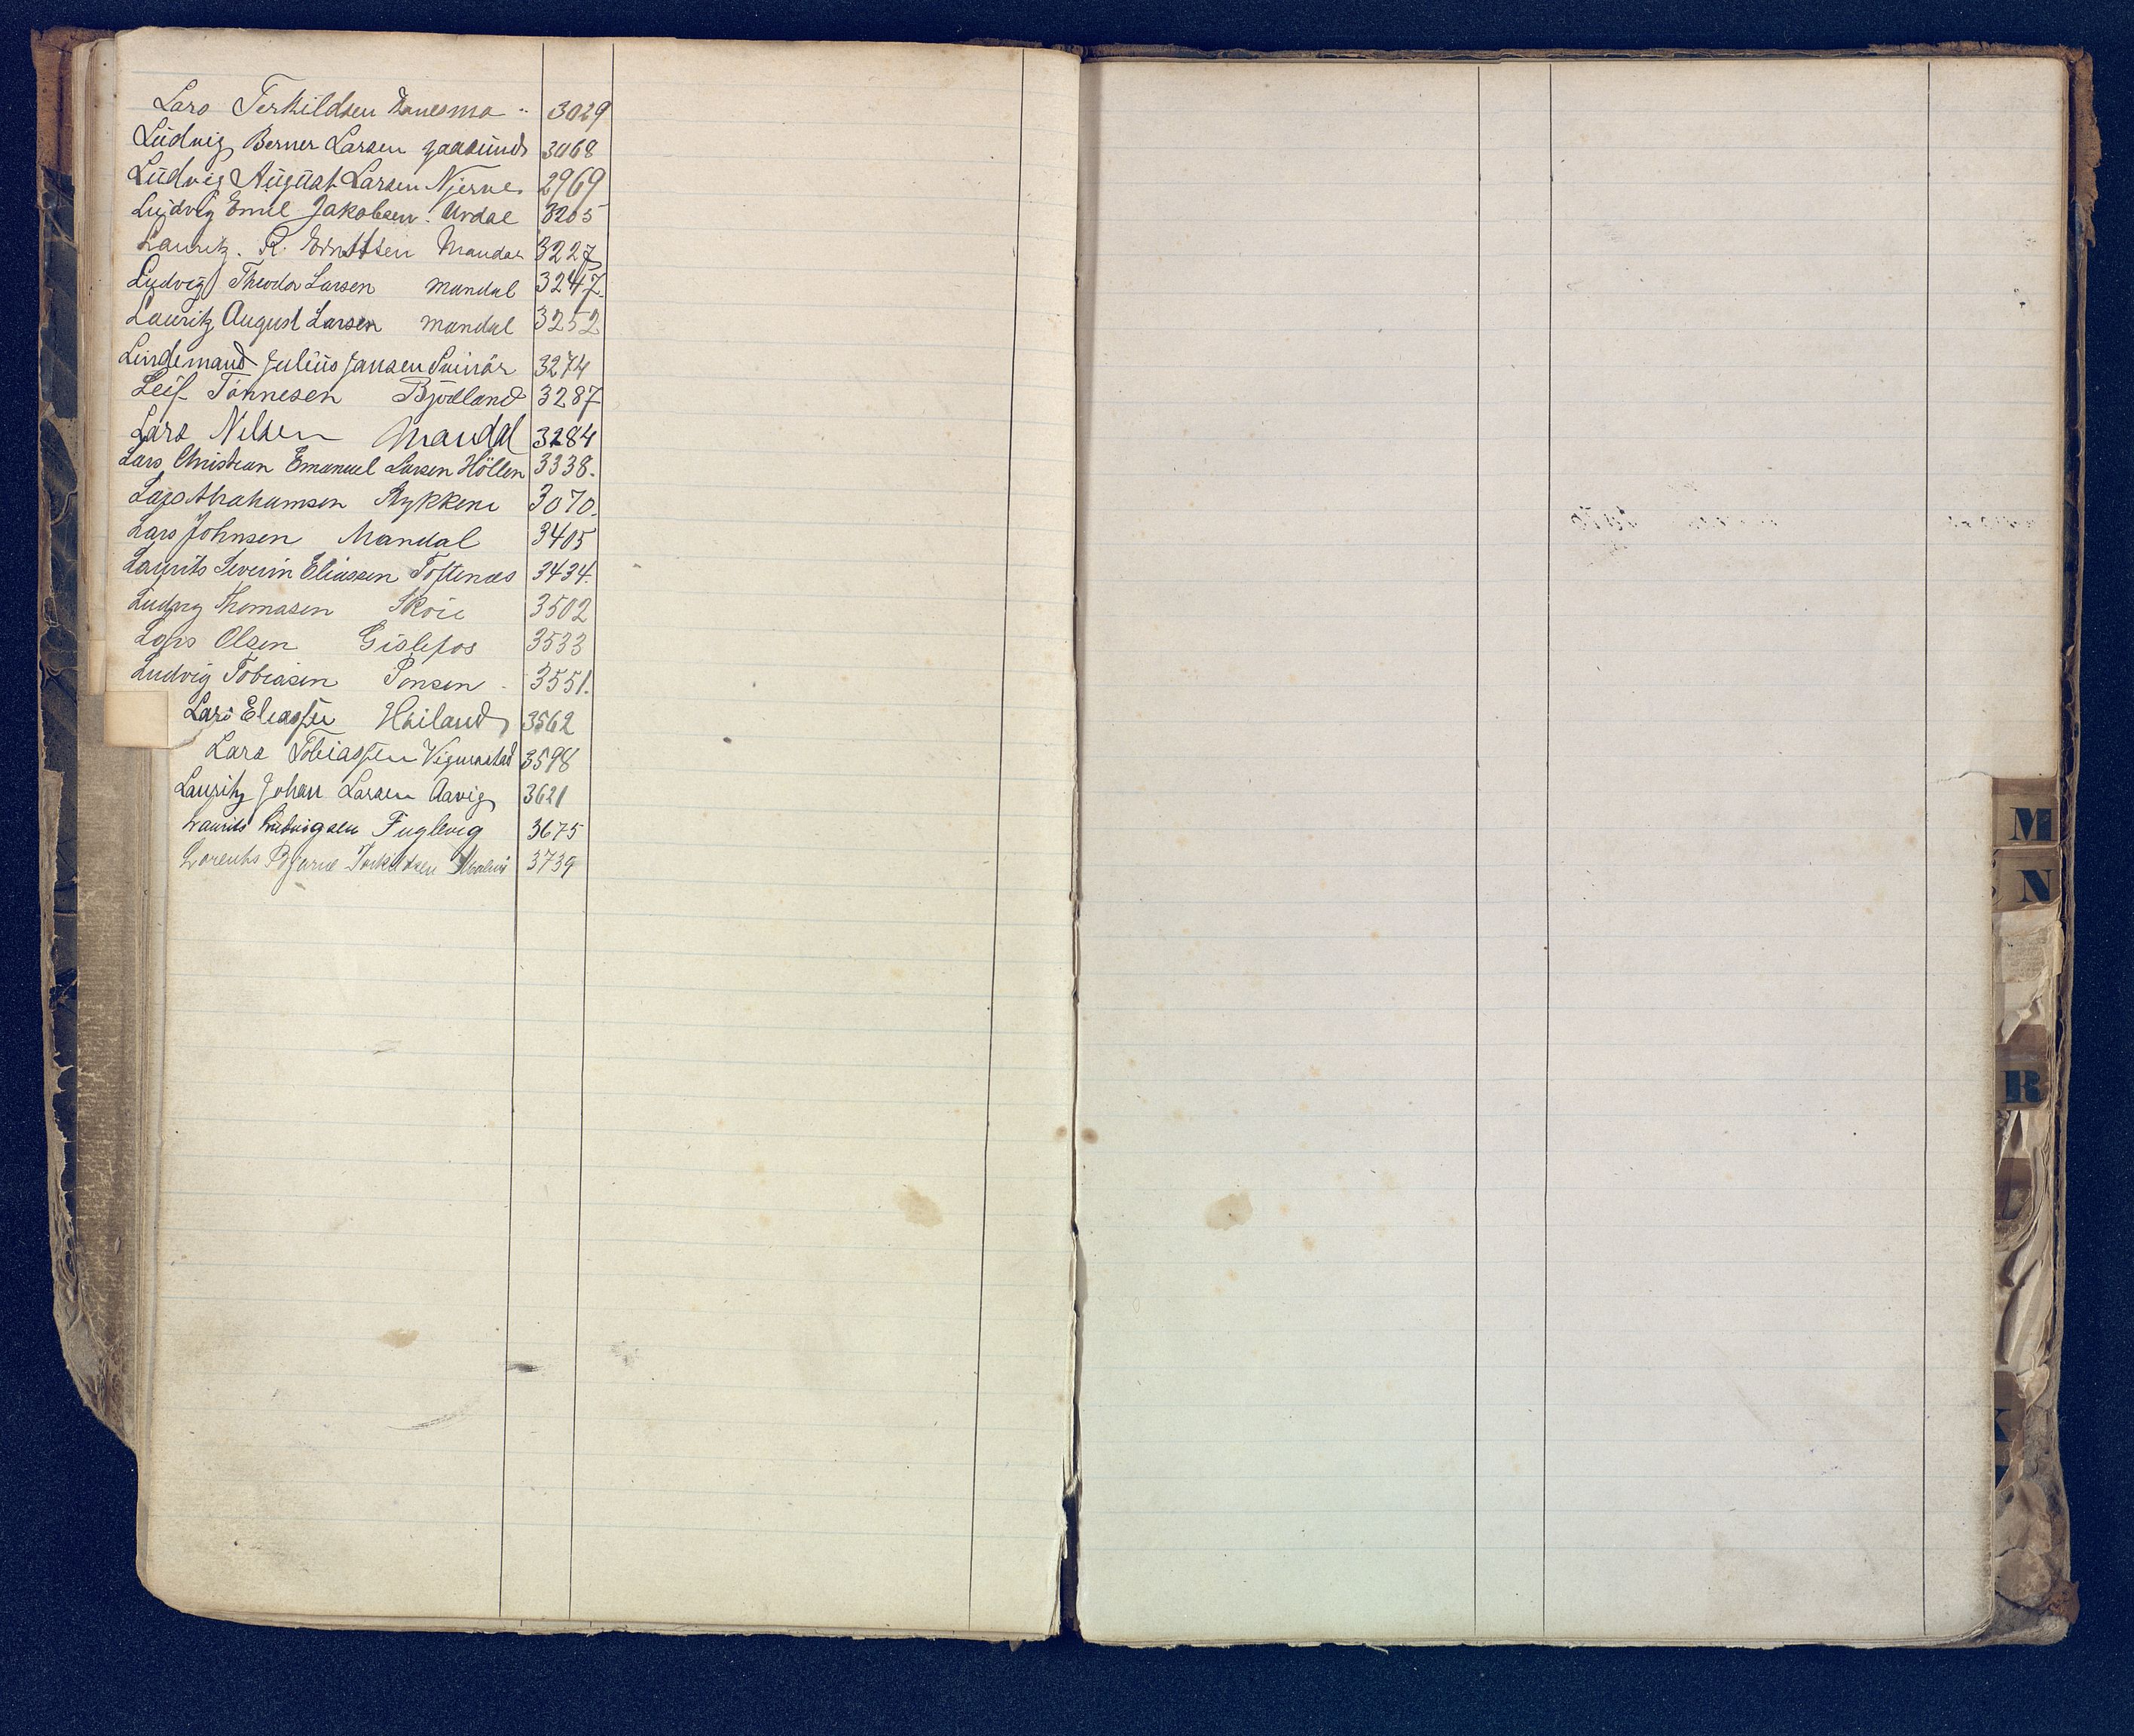 Lars Terkildsen 3029
Ludvig Berner Larsen Gaasund 3068
Ludvig August Larsen Njerve 2969
Ludvig Emil Jakobsen Urdal 3205
Lauritz. R. Mandal 3227
Ludvig Theodor Larsen mandal 3247.
Lauritz August Larsen mandal 3252
Lindemand Julius Jansen Svinör 3274
Leif Tönnesen Bjödland 3287
Lars Nilsen Mandal 3284
Lars Christian Emanuel Larsen Höllen 3338.
Lars Abrahamsen 3070.
Lars Johnsen Mandal 3405
Laurits Severin Eliassen Toftenæs 3434.
Ludvig Thomasen Skòie 3502
Lars Olsen Gislefos 3533
Ludvig Tobiasen 3551.
Lars Eliassen 3562
Lars Tobiassen Vigmostad 3598
Lauritz Johan Larsen Aavig 3621
Laurits Ludvigsen Fuglevig 3675
Lorents Bjarne 3739
M
N
R